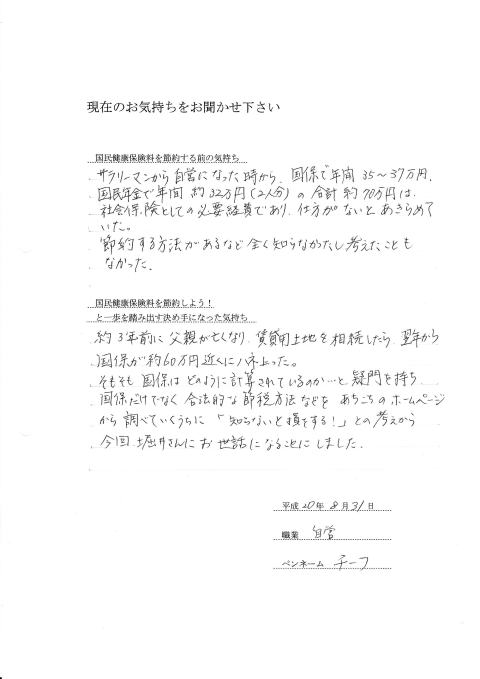 現在のお気持ちをお聞かせ下さい
国民健康保険料を節約する前の気持ち
サラリーマンから自営になった時から、国保で年間35〜37万円、
国民年金で年間約32万円(2人分)の合計約70万円は、
社会保険としての必要経費であり、仕方がないとあきらめて
いた。
節約する方法があるなど全く知らなかったし考えたことも
なかった。
国民健康保険料を節約しよう！
と一歩を踏み出す決め手になった気持ち
約3年前に父親が亡くなり、賃貸用土地を相続したら、翌年から
国保が約60万円近くにハネ上った。
そもそも国保はどのように計算されているのか…と疑問を持ち
国保だけでなく合法的な節税方法などをあちこちのホームページ
から調べていくうちに「知らないと損をする！」との考えから
今回堀井さんにお世話になることにしました。
平成20年8月31日
職業 自営
ペンネーム チーフ